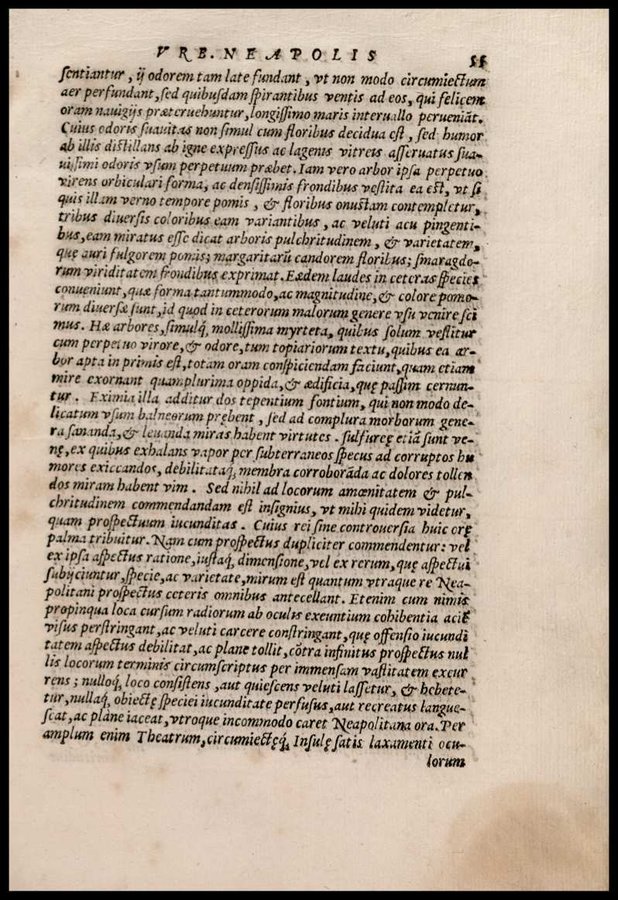 VRB. NEAPOLIS 55
sentiantur, ij odorem tam late fundant, vt non modo circumiectum
aer perfundant, sed quibusdam spirantibus ventis ad eos, qui felicem
oram nauigijs præteruehuntur, longissimo maris interuallo perueniāt.
Cuius odoris suauitas non simul cum floribus decidua est, sed humor
ab illis distillans ab igne expressus ac lagenis vitreis asseruatus sua-
uissimi odoris vsum perpetuum præbet. Iam vero arbor ipsa perpetuo
virens orbiculari forma, ac densissimis frondibus vestita ea est, vt si
quis illam verno tempore pomis, & floribus onustam contempletur,
tribus diuersis coloribus eam variantibus, ac veluti acu pingenti-
bus, eam miratus esse dicat arboris pulchritudinem, & varietatem,
quę auri fulgorem pomis; margaritarū candorem floribus; smaragdo-
rum viriditatem frondibus exprimat. Eædem laudes in ceteras species
conueniunt, quæ forma tantummodo, ac magnitudine, & colore pomo-
rum diuersæ sunt, id quod in ceterorum malorum genere vsu venire sci
mus. Hæ arbores, simulq́, mollissima myrteta, quibus solum vestitur
cum perpetuo virore, & odore, tum topiariorum textu, quibus ea ar-
bor apta in primis est, totam oram conspiciendam faciunt, quam etiam
mire exornant quamplurima oppida, & ædificia, quę passim cernun-
tur. Eximia illa additur dos tepentium fontium, qui non modo de-
licatum vsum balneorum prębent, sed ad complura morborum gene-
ra sananda, & leuanda miras habent virtutes. sulfuręę etiā sunt ve-
nę, ex quibus exhalans vapor per subterraneos specus ad corruptos hu
mores exiccandos, debilitataq́, membra corroborāda ac dolores tollen
dos miram habent vim. Sed nihil ad locorum amœnitatem & pul-
chritudinem commendandam est insignius, vt mihi quidem videtur,
quam prospectuum iucunditas. Cuius rei sine controuersia huic orę
palma tribuitur. Nam cum prospectus dupliciter commendentur: vel
ex ipsa aspectus ratione, iustaq́, dimensione, vel ex rerum, quę aspectui
subijciuntur, specie, ac varietate, mirum est quantum vtraque re Nea-
politani prospectus ceteris omnibus antecellant. Etenim cum nimis
propinqua loca cursum radiorum ab oculis exeuntium cohibentia aciē
visus perstringant, ac veluti carcere constringant, quę offensio iucundi
tatem aspectus debilitat, ac plane tollit, cōtra infinitus prospectus nul
lis locorum terminis circumscriptus per immensam vastitatem excur
rens; nulloq́, loco consistens, aut quiescens veluti lassetur, & hebete-
tur, nullaq́, obiectę speciei iucunditate perfusus, aut recreatus langue-
scat, ac plane iaceat, vtroque incommodo caret Neapolitana ora. Per
amplum enim Theatrum, circumiectęq́, Insulę satis laxamenti ocu-
lorum